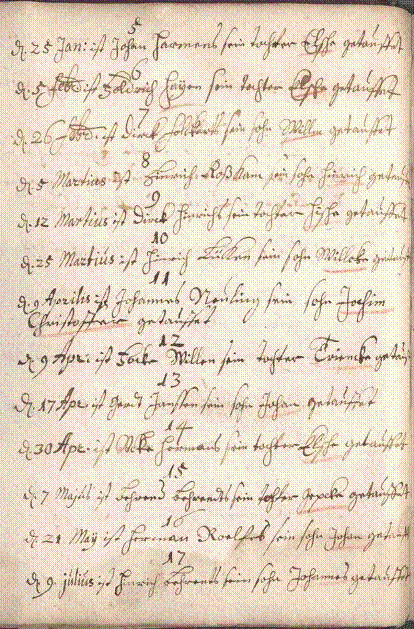 5
d. 25 Jani ist Johan Harmens sein tochter Elsche getauffet
6
d. 5 Febr ist Foldrich Haÿen sein tochter Elsche getauffet
7
d. 26 Febr. ist Dirck Folckerts sein sohn Willm getauffet
8
d. 5 Martius ist Hinrich Roßkam sein sohn Hinrich getauffet
9
d. 12 Martius ist Dirck Hinrichs sein tochter Hische getauffet
10
d. 25 Martius ist Hinrich Lücken sein sohn Willcke getauffet
11
d. 9 Aprilis ist Johannes Neuling sein sohn Jochim
Christoffer getauffet
12
d. 9 Apr: ist Focke Willen sein tochter Triencke getauffet
13
d. 17 Apr ist Gerdt Janssen sein sohn Johan getauffet
14
d. 30 Apr: ist Ocke Hermans sein tochter Elsche getauffet
15
d. 7 Majus ist Behrend Behrends sein tochter getauffet
16
d. 21 May ist Herman Roelfes sein sohn Johan getauffet
17
d. 9 julius ist Hinrich Behrends sein sohn Johannes getauffet